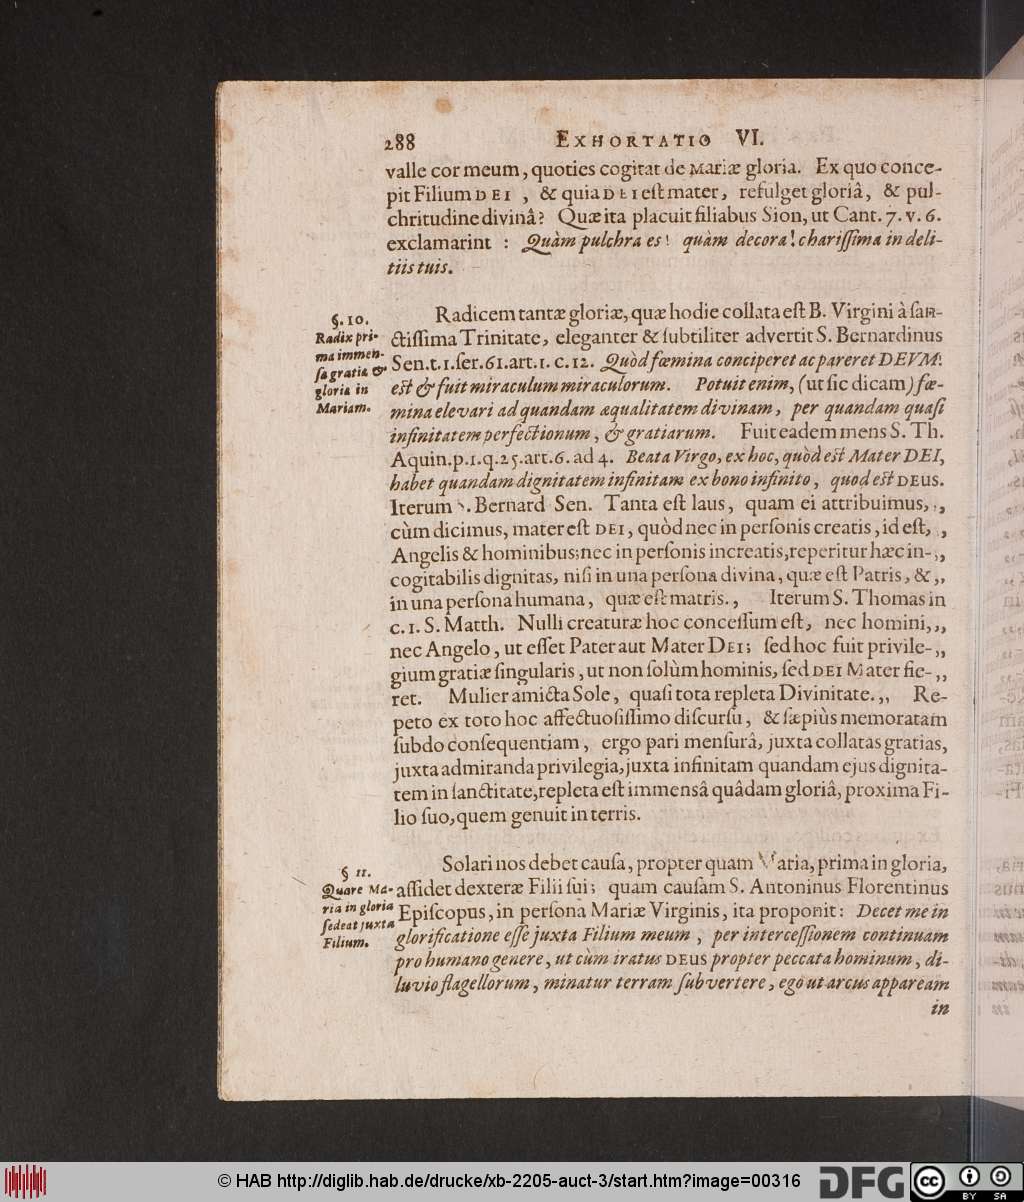 288 EXHORTATIO VI.
valle cor meum, quoties cogitat de Mariæ gloria. Ex quo conce-
pit Filium DEI, & quia DEI eſt mater, refulget gloriâ, & pul-
chritudine divinâ? Quæ ita placuit filiabus Sion, ut Cant. 7. v. 6.
exclamarint : Quàm pulchra es! quàm decora! chariſſima in deli-
tiis tuis.
§. 10.
Radix pri-
ma immen-
ſa gratia &
gloria in
Mariam.
Radicem tantæ gloriæ, quæ hodie collata eſt B. Virgini à ſan-
ctiſſima Trinitate, eleganter & ſubtiliter advertit S. Bernardinus
Sen. t. 1. ſer. 61. art. 1. c. 12. Quòd fæmina conciperet ac pareret DEVM:
eſt & fuit miraculum miraculorum. Potuit enim, (ut ſic dicam) fæ-
mina elevari ad quandam æqualitatem divinam, per quandam quaſi
infinitatem perfectionum, & gratiarum. Fuit eadem mens S. Th.
Aquin. p. 1. q. 25. art. 6. ad 4. Beata Virgo, ex hoc, quòd eſt Mater DEI,
habet quandam dignitatem infinitam ex bono infinito, quod eſt DEUS.
Iterum S. Bernard Sen. Tanta eſt laus, quam ei attribuimus, ,,
cùm dicimus, mater eſt DEI, quòd nec in perſonis creatis, id eſt, ,,
Angelis & hominibus; nec in perſonis increatis, reperitur hæc in- ,,
cogitabilis dignitas, niſi in una perſona divina, quæ eſt Patris, & ,,
in una perſona humana, quæ eſt matris. ,, Iterum S. Thomas in
c. 1. S. Matth. Nulli creaturæ hoc conceſſum eſt, nec homini, ,,
nec Angelo, ut eſſet Pater aut Mater DEI; ſed hoc fuit privile- ,,
gium gratiæ ſingularis, ut non ſolùm hominis, ſed DEI Mater fie- ,,
ret. Mulier amicta Sole, quaſi tota repleta Divinitate. ,, Re-
peto ex toto hoc affectuoſiſſimo diſcurſu, & ſæpiùs memoratam
ſubdo conſequentiam, ergo pari menſurâ, juxta collatas gratias,
juxta admiranda privilegia, juxta infinitam quandam ejus dignita-
tem in ſanctitate, repleta eſt immensâ quâdam gloriâ, proxima Fi-
lio ſuo, quem genuit in terris.
§ 11.
Quare Ma-
ria in gloria
ſedeat juxta
Filium.
Solari nos debet cauſa, propter quam Maria, prima in gloria,
aſſidet dexteræ Filii ſui; quam cauſam S. Antoninus Florentinus
Epiſcopus, in perſona Mariæ Virginis, ita proponit: Decet me in
glorificatione eſſe juxta Filium meum, per interceſſionem continuam
pro humano genere, ut cùm iratus DEUS propter peccata hominum, di-
luvio flagellorum, minatur terram ſubvertere, ego ut arcus appaream
in
© HAB http://diglib.hab.de/drucke/xb-2205-auct-3/start.htm?image=00316
DFG
cc BY SA